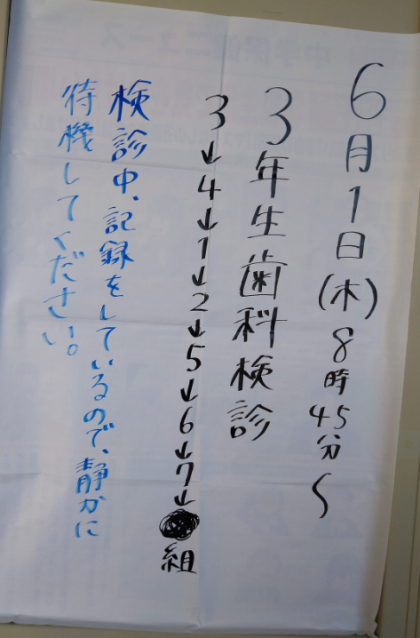 6月1日(木)8時45分〜
3年生歯科検診
3→4→1→2→5→6→7→組
検診中、記録をしているので、静かに
待機してください。